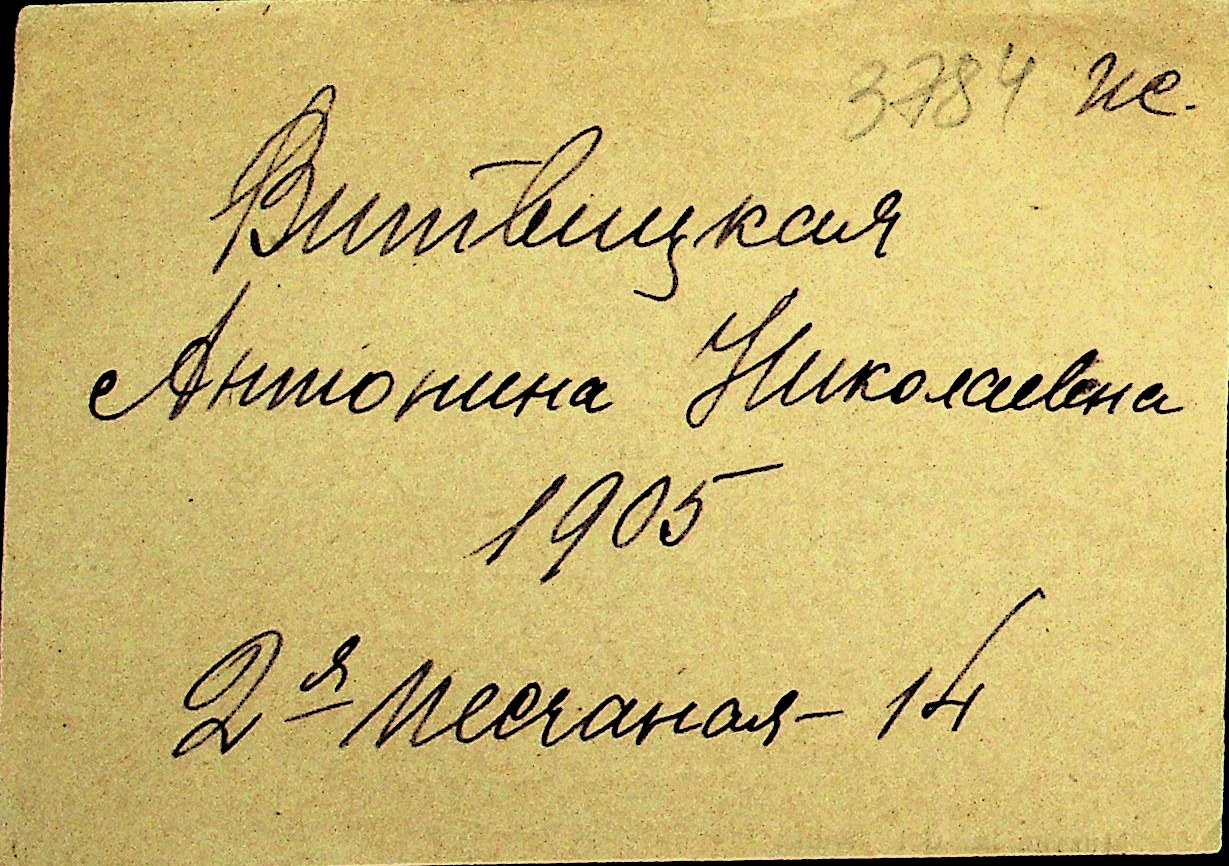 3784 ис.
Витвицкая
Антонина Николаевна
1905
2я Песчаная - 14